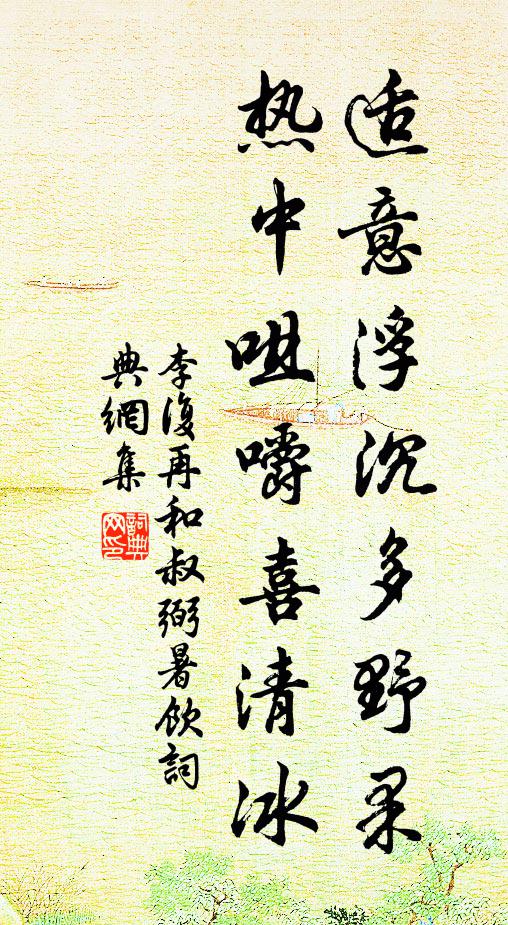 适意浮沉多野果
热中咀嚼喜清冰
李復再和叔弼暑飲詞
典網集
詞典网印